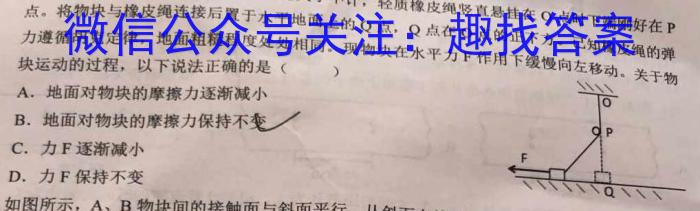 轻质橡皮绳竖直悬挂在
好在P
点。将物块与橡皮绳连接后置于水平地
点，Q点在
力遵
地面粗糙程度处处相同
现物块在水平力F作用下缓慢向左移动。关于物
绳的弹
块运动的过程，以下说法正确的是（ ）
微信公众号关注：趣找答案
A．地面对物块的摩擦力逐渐减小
B．地面对物块的摩擦力保持不变
C．力F逐渐减小
D．力F保持不变
O
P
F
Q
如图所示，A、B物块间的接触面与斜面平行